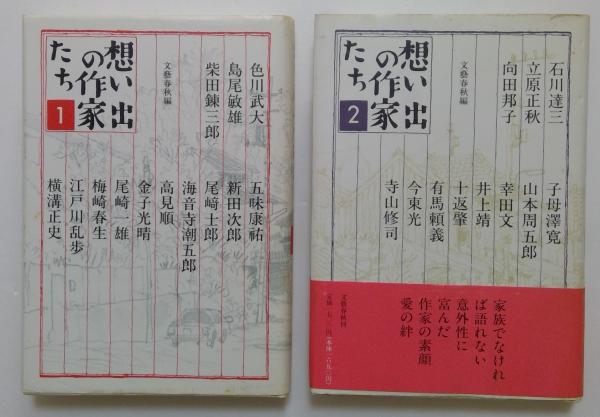 想い出
の作家
たち
1
文藝春秋編
色川武大
島尾敏雄
柴田錬三郎
五味康祐
新田次郎
尾﨑士郎
海音寺潮五郎
高見順
金子光晴
尾崎一雄
梅崎春生
江戸川乱歩
横溝正史
想い出
の作家
たち
2
文藝春秋編
石川達三
立原正秋
向田邦子
子母澤寛
山本周五郎
幸田文
井上靖
十返肇
有馬頼義
今東光
寺山修司
家族でなければ
ば語れない
意外性に
富んだ
作家の素顔
愛の絆
文藝春秋刊